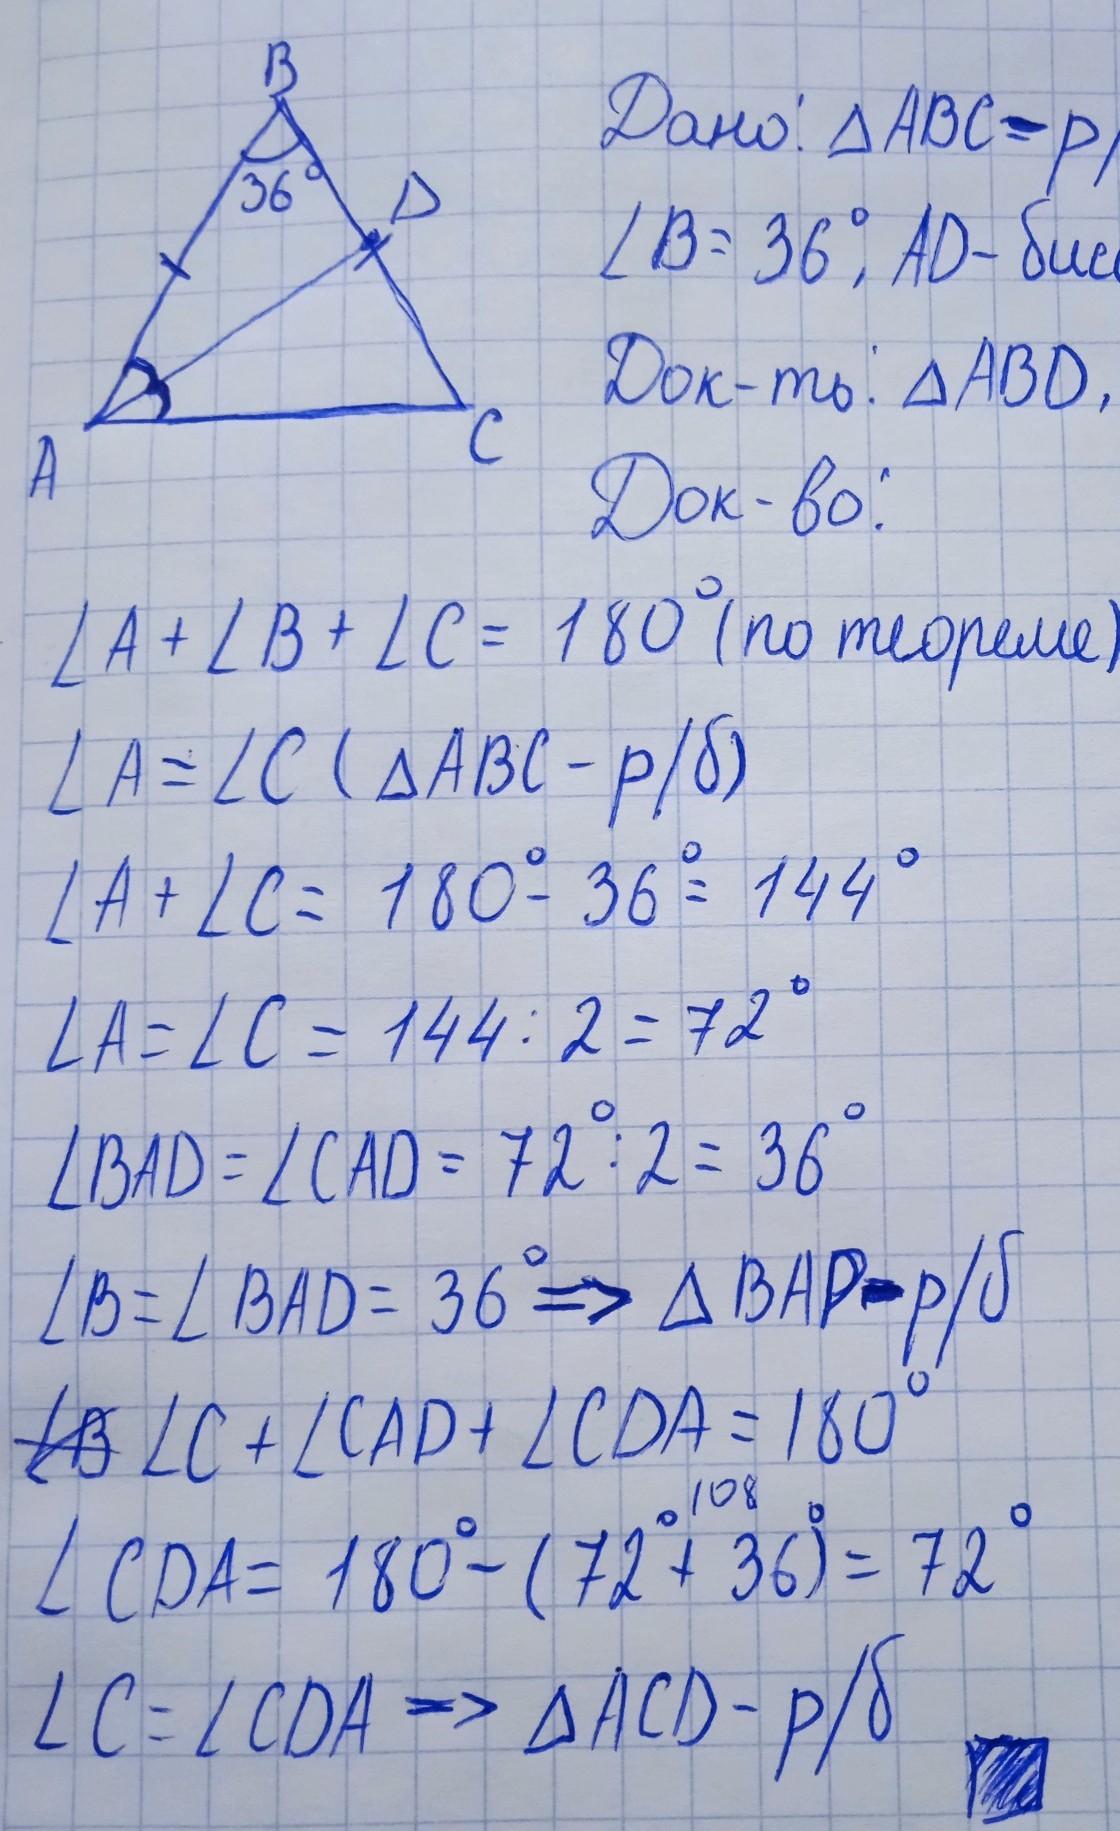 B
36°
D
A
C
Дано: △ABC - р/
∠B = 36°, AD - бисс
Док-ть: △ABD,
Док-во:
∠A + ∠B + ∠C = 180° (по теореме)
∠A = ∠C (△ABC - р/б)
∠A + ∠C = 180° - 36° = 144°
∠A = ∠C = 144 : 2 = 72°
∠BAD = ∠CAD = 72° : 2 = 36°
∠B = ∠BAD = 36° => △BAD - р/б
∠C + ∠CAD + ∠CDA = 180°
108
∠CDA = 180° - (72° + 36°) = 72°
∠C = ∠CDA => △ACD - р/б